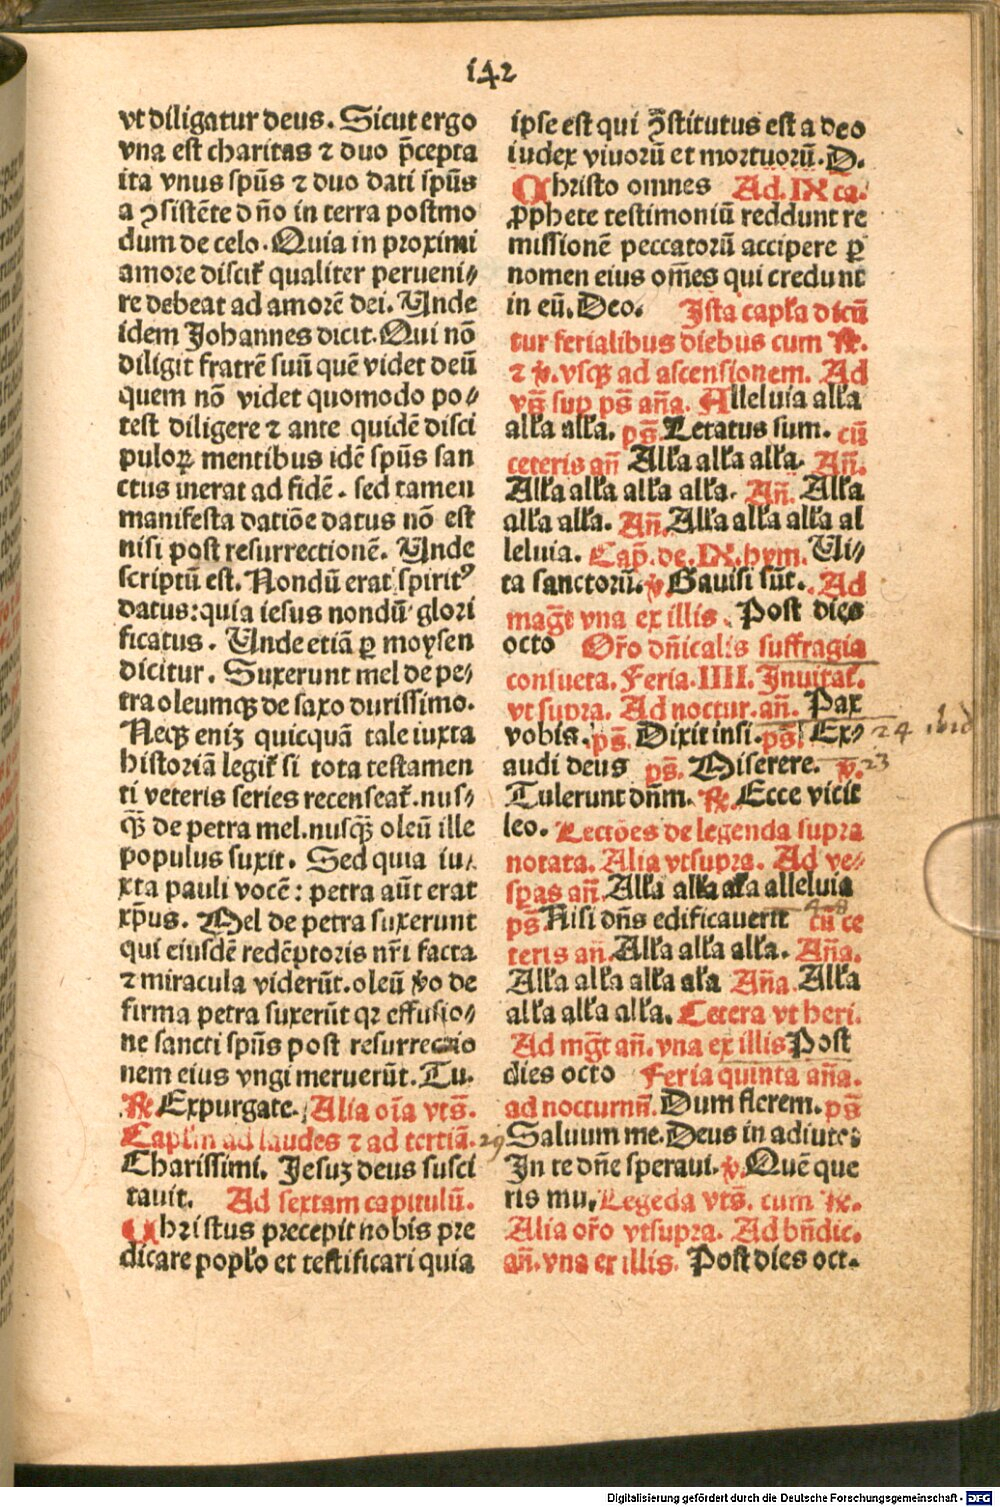 142
vt diligatur deus. Sicut ergo
vna est charitas ⁊ duo p̄cepta
ita vnus spūs ⁊ duo dati spūs
a ꝯsistēte dño in terra postmo
dum de celo. Quia in proximi
amore discit᷑ qualiter perueni⸗
re debeat ad amorē dei. Unde
idem Johannes dicit. Qui nō
diligit fratrē suū quē videt deū
quem nō videt quomodo po⸗
test diligere ⁊ ante quidē disci
puloꝝ mentibus idē spūs san
ctus inerat ad fidē. sed tamen
manifesta datiōe datus nō est
nisi post resurrectionē. Unde
scriptū est. Nondū erat spiritꝰ
datus: quia iesus nondū glori
ficatus. Unde etiā ꝑ moysen
dicitur. Suxerunt mel de pe⸗
tra oleumqꝫ de saxo durissimo.
Neqꝫ eniꝫ quicquā tale iuxta
historiā legit᷑ si tota testamen
ti veteris series recenseat᷑. nus⸗
q̄ꝫ de petra mel. nusq̄ꝫ oleū ille
populus suxit. Sed quia iu⸗
xta pauli vocē: petra aūt erat
xp̄us. Mel de petra suxerunt
qui eiusdē redēptoris nr̄i facta
⁊ miracula viderūt. oleū ꝟo de
firma petra suxerūt qꝛ effusio⸗
ne sancti spūs post resurrectio
nem eius vngi meruerūt. Tu.
℟. Expurgate. Alia oīa vts̄.
Caplm̄ ad laudes ⁊ ad tertiā. 29
Charissimi. Jesuꝫ deus susci
tauit. Ad sextam capitulū.
Christus precepit nobis pre
dicare popl̓o et testificari quia
ipse est qui ꝯ̄stitutus est a deo
iudex viuorū et mortuorū. D.
Christo omnes Ad. IX ca.
ꝓphete testimoniū reddunt re
missionē peccatorū accipere ꝑ
nomen eius om̄es qui credunt
in eū. Deo. Ista capl̓a dicū
tur ferialibus diebus cum ℟.
⁊ ℣. vsqꝫ ad ascensionem. Ad
vs̄ sup ps̄ aña. Alleluia all̓a
all̓a all̓a. ps̄. Letatus sum. cū
ceteris añ All̓a all̓a all̓a. Añ.
All̓a all̓a all̓a all̓a. Añ. All̓a
all̓a all̓a. Añ. All̓a all̓a all̓a al
leluia. Cap̄. de. IX. hym. Ui⸗
ta sanctorū. ℣. Gauisi sūt. Ad
mag̅t vna ex illis. Post dies
octo Or̄o dñicalis suffragia
consueta. Feria. IIII. Inuitat᷑.
vt supra. Ad noctur. añ. Pax
vobis. ps̄. Dixit insi. ps̄. Ex⸗ 24 ibid
audi deus ps̄. Miserere. ℣. 23
Tulerunt dñm. ℟. Ecce vicit
leo. Lectōes de legenda supra
notata. Alia vtsupra. Ad ve⸗
spas añ. All̓a all̓a all̓a alleluia
ps̄ Nisi dñs edificauerit cū ce
teris añ. All̓a all̓a all̓a. Aña.
All̓a all̓a all̓a all̓a Aña. All̓a
all̓a all̓a all̓a. Cetera vt heri.
Ad mg̅t añ. vna ex illis Post
dies octo Feria quinta aña.
ad nocturnū. Dum flerem. ps̄
Saluum me. Deus in adiuto:
In te dñe speraui. ℣. Quē que
ris mu. Legēda vts̄. cum ℟.
Alia or̄o vtsupra. Ad bñdic.
añ. vna ex illis. Post dies oct.
Digitalisierung gefördert durch die Deutsche Forschungsgemeinschaft - DFG